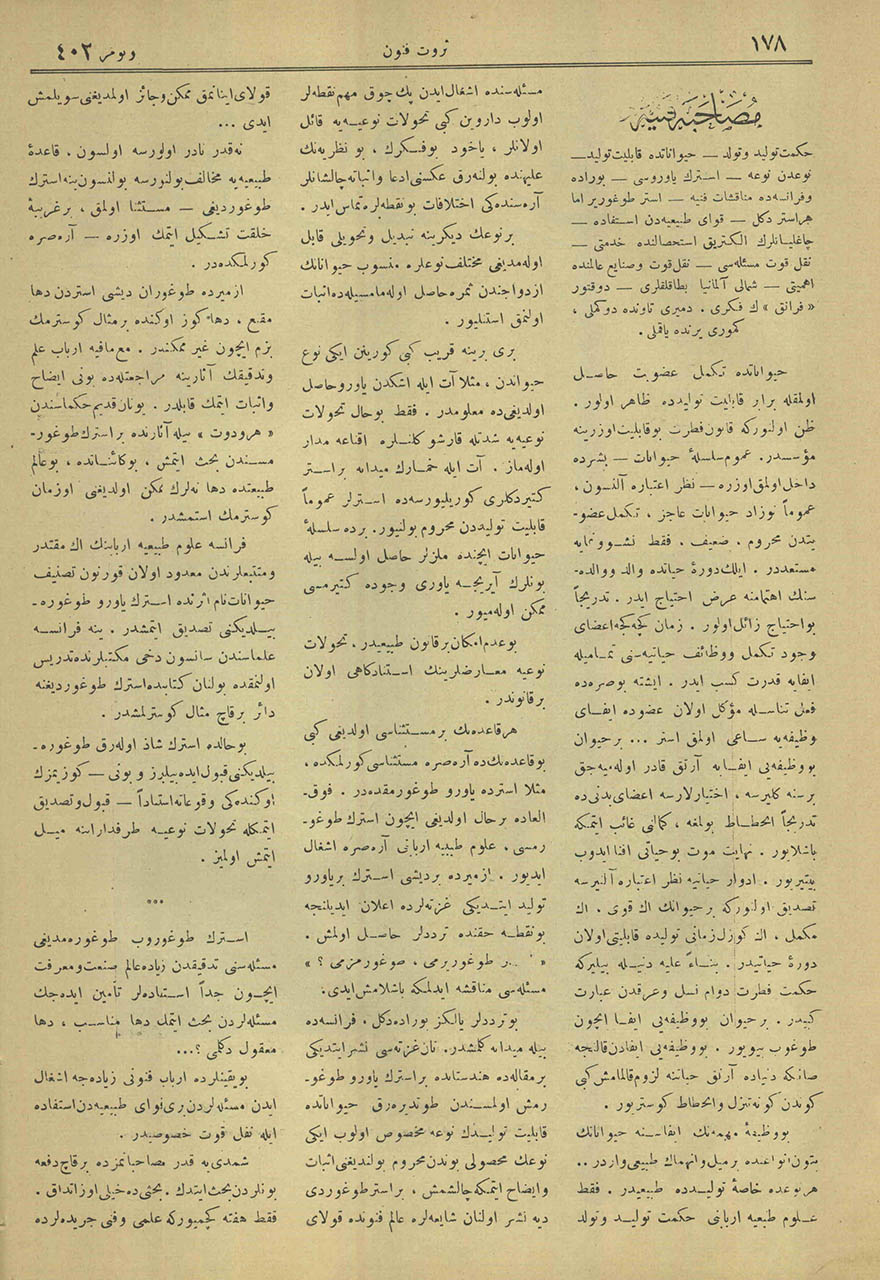 ١٧٨
ثروت فنون
نومرو ٤٠٢
مصاحبهٔ فنیه
حکمت تولید و تولد — حیواناتده قابلیت تولید —
نوعدن نوعه — استرك یاوروسی — بوراده
وفرانسه‌ده مناقشات فنیه — استر طوغورير اما
هر استر دکل — قوای طبیعیه‌دن استفاده —
چاغلیانلرك الكتریق استحصالنده خدمتی —
نقل قوت مسئله‌سی — نقل قوت وصنایع عالمنده
اهمیتی — شمالی آلمانیا بطاقلقلری — دوقتور
« فرانق » ك فکری . دمیری تاونده دوکملی ،
کموری یرنده یاقملی .
حیواناتده تکمل عضویت حاصل
اولمقله برابر قابلیت تولیدده ظاهر اولور .
ظن اولنورکه قانون فطرت بوقابلیت اوزرینه
مؤسسدر . عموم سلسلهٔ حیوانات — بشرده
داخل اولمق اوزره — نظر اعتباره آلنسون ،
عموماً نوزاد حیوانات عاجز ، تکمل عضو-
یتدن محروم . ضعیف . فقط نشوونمایه
مستعددر . ایلك دورهٔ حیاتده والد ووالده-
سنك اهتمامنه عرض احتیاج ایدر . تدریجاً
بواحتیاج زائل اولور . زمان کچه‌کچه اعضای
وجود تکمل ووظائف حیاتیه‌سنی تمامیله
ایفایه قدرت کسب ایدر . ایشته بوصره‌ده
فعل تناسله مؤکل اولان عضوده ایفای
وظیفه‌یه ساعی اولمق استر ... برحیوان
بووظیفه‌یی ایفایه آرتق قادر اوله‌میه‌جق
برسنه کلیرسه ، اختیارلارسه اعضای بدنی‌ده
تدریجاً انحطاط بولمغه ، کمالنی غائب ایتمکه
باشلایور . نهایت موت بوحیاتی افنا ایدوب
بیتیریور . ادوار حیاتیه نظر اعتباره آلنیرسه
تصدیق اولنورکه برحیوانك اك قوی . اك
مکمل ، اك کوزل زمانی تولیده قابلیتی اولان
دورهٔ حیاتیدر . بناءً علیه دنیله بیلیرکه
حکمت فطرت دوام نسل وعرقدن عبارت
کیدر . برحیوان بووظیفه‌یی ایفا ایچون
طوغوب بیویور . بووظیفه‌یی ایفادن قالنجه
صانکه دنیاده آرتق حیاتنه لزوم قالمامش کبی
کوندن کونه تنزل وانحطاط کوستریور .
بووظیفهٔ مهمه‌نك ایفاسنه حیواناتك
بتون انواعنده برمیل وانهماك طبیعی واردر ..
هرنوعده خاصهٔ تولیدده طبیعیدر . فقط
علوم طبیعیه اربابنی حکمت تولید وتولد
مسئله‌سنده اشغال ایدن پك چوق مهم نقطه‌لر
اولوب داروین کبی تحولات نوعیه‌یه قائل
اولانلر ، یاخود بوفکرك ، بو نظریه‌نك
علیهنده بولنه‌رق عکسنی ادعا واثباته چالشانلر
آره‌سنده‌کی اختلافات بونقطه‌لره تماس ایدر .
برنوعك دیکرینه تبدیل وتحویلی قابل
اوله‌مدیغی مختلف نوعلره منسوب حیواناتك
ازدواجندن ثمره حاصل اوله‌مامسیله‌ده اثبات
اولنمق استنیلیور .
بری برینه قریب کبی کورینن ایکی نوع
حیواندن ، مثلا آت ایله اشکدن یاوروحاصل
اولدیغی‌ده معلومدر . فقط بوحال تحولات
نوعیه‌یه شدتله قارشوکلنلره اقناعه مدار
اوله‌ماز . آت ایله خمارك میدانه براستر
کتیردکلری کوریلیورسه‌ده استرلر عموماً
قابلیت تولیددن محروم بولنیور. برده سلسلهٔ
حیوانات ایچنده ملزلر حاصل اولسه بیله
بونلرك آیریجه یاوری وجوده کتیرمسی
ممکن اوله‌میور .
بوعدم امکان برقانون طبیعیدر ، تحولات
نوعیه معارضلرینك استنادکاهی اولان
برقانوندر .
هرقاعده‌نك برمستثناسی اولدیغی کبی
بوقاعده‌نك‌ده آره‌صره مستثناسی کورلمکده ،
مثلا استرده یاورو طوغورمقده‌در . فوق-
العاده برحال اولدیغی ایچون استرك طوغو-
رمسی ، علوم طبیعیه اربابنی آره‌صره اشغال
ایدیور . ازمیرده بردیشی استرك بریاورو
تولید ایتدیکی غزته‌لرده اعلان ایدیلنجه
بونقطه حقنده ترددلر حاصل اولمش .
طوغوریرمی ، طوغورمزمی ؟ »
مسئله‌سی مناقشه ایدلمکه باشلامش ایدی.
بوترددلر یالکز بوراده دکل ، فرانسه‌ده
بیله میدانه کلمشدر. تان غزته‌سی نشر ایتدیکی
برمقاله‌ده هندستانده براسترك یاورو طوغو-
رمش اولمسندن طوتدیره‌رق حیواناتده
قابلیت تولیدك نوعه مخصوص اولوب ایکی
نوعك محصولی بوندن محروم بولندیغنی اثبات
وایضاح ایتمکه چالشمش ، براستر طوغوردی
دیه نشر اولنان شایعه‌لره عالم فنونده قولای
قولای اینانمق ممکن وجائز اولمدیغنی سویلمش
ایدی ...
نه‌قدر نادر اولورسه اولسون ، قاعدهٔ
طبیعیه‌یه مخالف بولنورسه بولنسون ینه استرك
طوغوردیغی — مستثنا اولمق ، برغریبهٔ
خلقت تشکیل ایتمك اوزره — آره‌صره
کورلمکده‌در .
ازمیرده طوغوران دیشی استردن دها
مقنع ، دها کوز اوکنده برمثال کوسترمك
بزم ایچون غیر ممکندر . مع‌مافیه ارباب علم
وتدقیقك آثارینه مراجعتله‌ده بونی ایضاح
واثبات ایتمك قابلدر . یونان قدیم حکماسندن
« هرودوت » بیله آثارنده براسترك طوغور-
مسندن بحث ایتمش ، بوکائناتده ، بوعالم
طبیعتده دها نه‌لرك ممکن اولدیغنی اوزمان
کوسترمك استمشدر .
فرانسه علوم طبیعیه اربابنك اك مقتدر
ومتتبعلرندن معدود اولان قورنون تصنیف
حیوانات نام اثرنده استرك یاورو طوغوره-
بیلدیکنی تصدیق ایتمشدر . ینه فرانسه
علماسندن سانسون دخی مکتبلرنده تدریس
اولنمقده بولنان کتابنده استرك طوغوردیغنه
دائر برقاچ مثال کوسترلمشدر .
بوحالده استرك شاذ اوله‌رق طوغوره-
بیلدیکنی قبول ایده‌بیلیرز و بونی — کوزیمزك
اوکنده‌کی وقوعاته استناداً — قبول وتصدیق
ایتمکله تحولات نوعیه طرفدارلرینه میل
ایتمش اولمیز .
***
استرك طوغوروب طوغوره‌مدیغی
مسئله‌سنی تدقیقدن زیاده عالم صنعت ومعرفت
ایچون جداً استفاده‌لر تأمین ایده‌جك
مسئله‌لردن بحث ایتمك دها مناسب ، دها
معقول دکلمی ؟...
بویقینلرده ارباب فنونی زیاده‌جه اشغال
ایدن مسئله‌لردن بری قوای طبیعیه‌دن استفاده
ایله نقل قوت خصوصیدر .
شمدی‌یه قدر مصاحباتمزده برقاچ دفعه
بونلردن بحث ایتدك . بحثی‌ده خیلی اوزاتدق .
فقط هفته کچمیورکه علمی وفنی جریده‌لرده